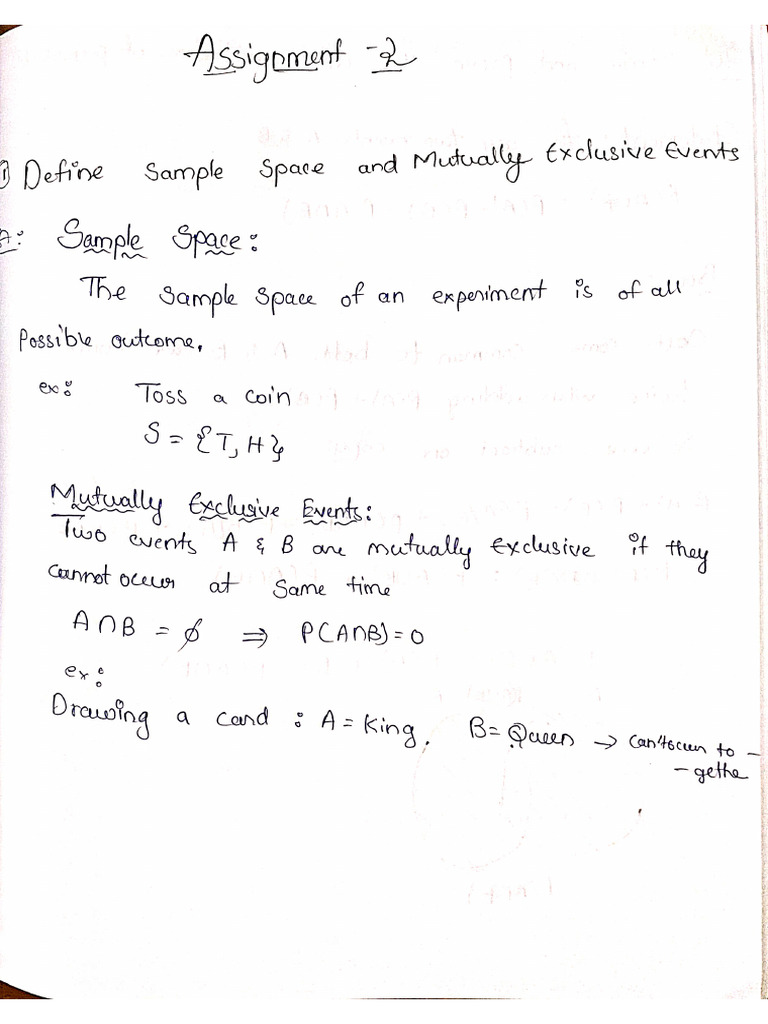 Assignment -2
① Define Sample Space and Mutually Exclusive Events
A: Sample Space:
The Sample Space of an experiment is of all
Possible outcome,
ex: Toss a coin
S = {T, H}
Mutually Exclusive Events:
Two events A & B are mutually exclusive if they
cannot occur at same time
A∩B = ∅ ⇒ P(A∩B) = 0
ex:
Drawing a card : A = King, B = Queen → can't occur to -
- gethe